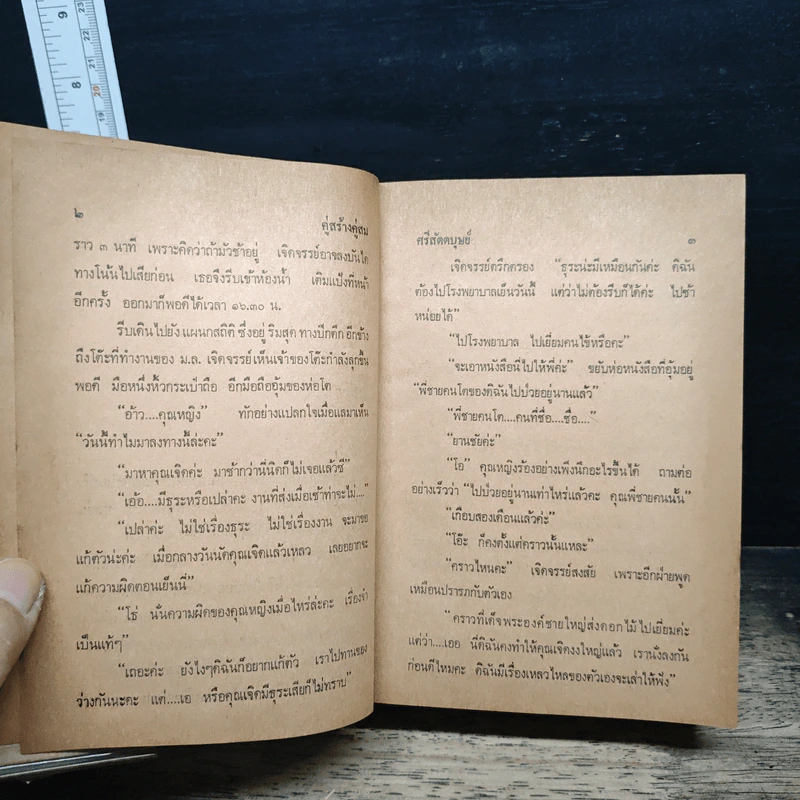 ๒
คู่สร้างคู่สม
ราว ๓ นาที เพราะคิดว่าถ้ามัวช้าอยู่ เจิดจรรย์อาจลงบันได
ทางโน้นไปเสียก่อน เธอจึงรีบเข้าห้องน้ำ เติมแป้งที่หน้า
อีกครั้ง ออกมาก็พอดีได้เวลา ๑๖.๓๐ น.
รีบเดินไปยังแผนกสถิติ ซึ่งอยู่ริมสุด ทางปีกตึกอีกข้าง
ถึงโต๊ะที่ทำงานของ ม.ล. เจิดจรรย์เห็นเจ้าของโต๊ะกำลังลุกขึ้น
พอดี มือหนึ่งหิ้วกระเป๋าถือ อีกมือถืออุ้มของห่อโต
“อ้าว....คุณหญิง” ทักอย่างแปลกใจเมื่อแลมาเห็น
“วันนี้ทำไมมาลงทางนี้ล่ะคะ”
“มาหาคุณเจิดค่ะ มาช้ากว่านี่นิดก็ไม่เจอแล้วซี”
“เอ้อ....มีธุระหรือเปล่าคะ งานที่ส่งเมื่อเช้าท่าจะไม่....”
“เปล่าค่ะ ไม่ใช่เรื่องธุระ ไม่ใช่เรื่องงาน จะมาขอ
แก้ตัวน่ะค่ะ เมื่อกลางวันนัดคุณเจิดแล้วเหลว เลยอยากจะ
แก้ความผิดตอนเย็นนี่”
“โธ่ นั่นความผิดของคุณหญิงเมื่อไหร่ล่ะคะ เรื่องจำ
เป็นแท้ๆ”
“เถอะค่ะ ยังไงๆดิฉันก็อยากแก้ตัว เราไปทานของ
ว่างกันนะคะ แต่....เอ หรือคุณเจิดมีธุระเสียก็ไม่ทราบ”
ศรีสัตตบุษย์
๓
เจิดจรรย์ตรึกตรอง “ธุระน่ะมีเหมือนกันค่ะ ดิฉัน
ต้องไปโรงพยาบาลเย็นวันนี้ แต่ว่าไม่ต้องรีบก็ได้ค่ะ ไปช้า
หน่อยได้”
“ไปโรงพยาบาล ไปเยี่ยมคนไข้หรือคะ”
“จะเอาหนังสือนี่ไปให้พี่ค่ะ” ขยับห่อหนังสือที่อุ้มอยู่
“พี่ชายคนโตของดิฉันไปป่วยอยู่นานแล้ว”
“พี่ชายคนโต....คนที่ชื่อ....ชื่อ....”
“ยานชัยค่ะ”
“โอ” คุณหญิงร้องอย่างเพิ่งนึกอะไรขึ้นได้ ถามต่อ
อย่างเร็วว่า “ไปป่วยอยู่นานเท่าไหร่แล้วคะ คุณพี่ชายคนนั้น”
“เกือบสองเดือนแล้วค่ะ”
“โอ๊ะ ก็คงตั้งแต่คราวนั้นแหละ”
“คราวไหนคะ” เจิดจรรย์สงสัย เพราะอีกฝ่ายพูด
เหมือนปรารภกับตัวเอง
“คราวที่เด็จพระองค์ชายใหญ่ส่งดอกไม้ไปเยี่ยมค่ะ
แต่ว่า....เออ นี่ดิฉันคงทำให้คุณเจิดงงใหญ่แล้ว เรานั่งลงกัน
ก่อนดีไหมคะ ดิฉันมีเรื่องเหลวไหลของตัวเองจะเล่าให้ฟัง”
9
8
23
22
21
20
19